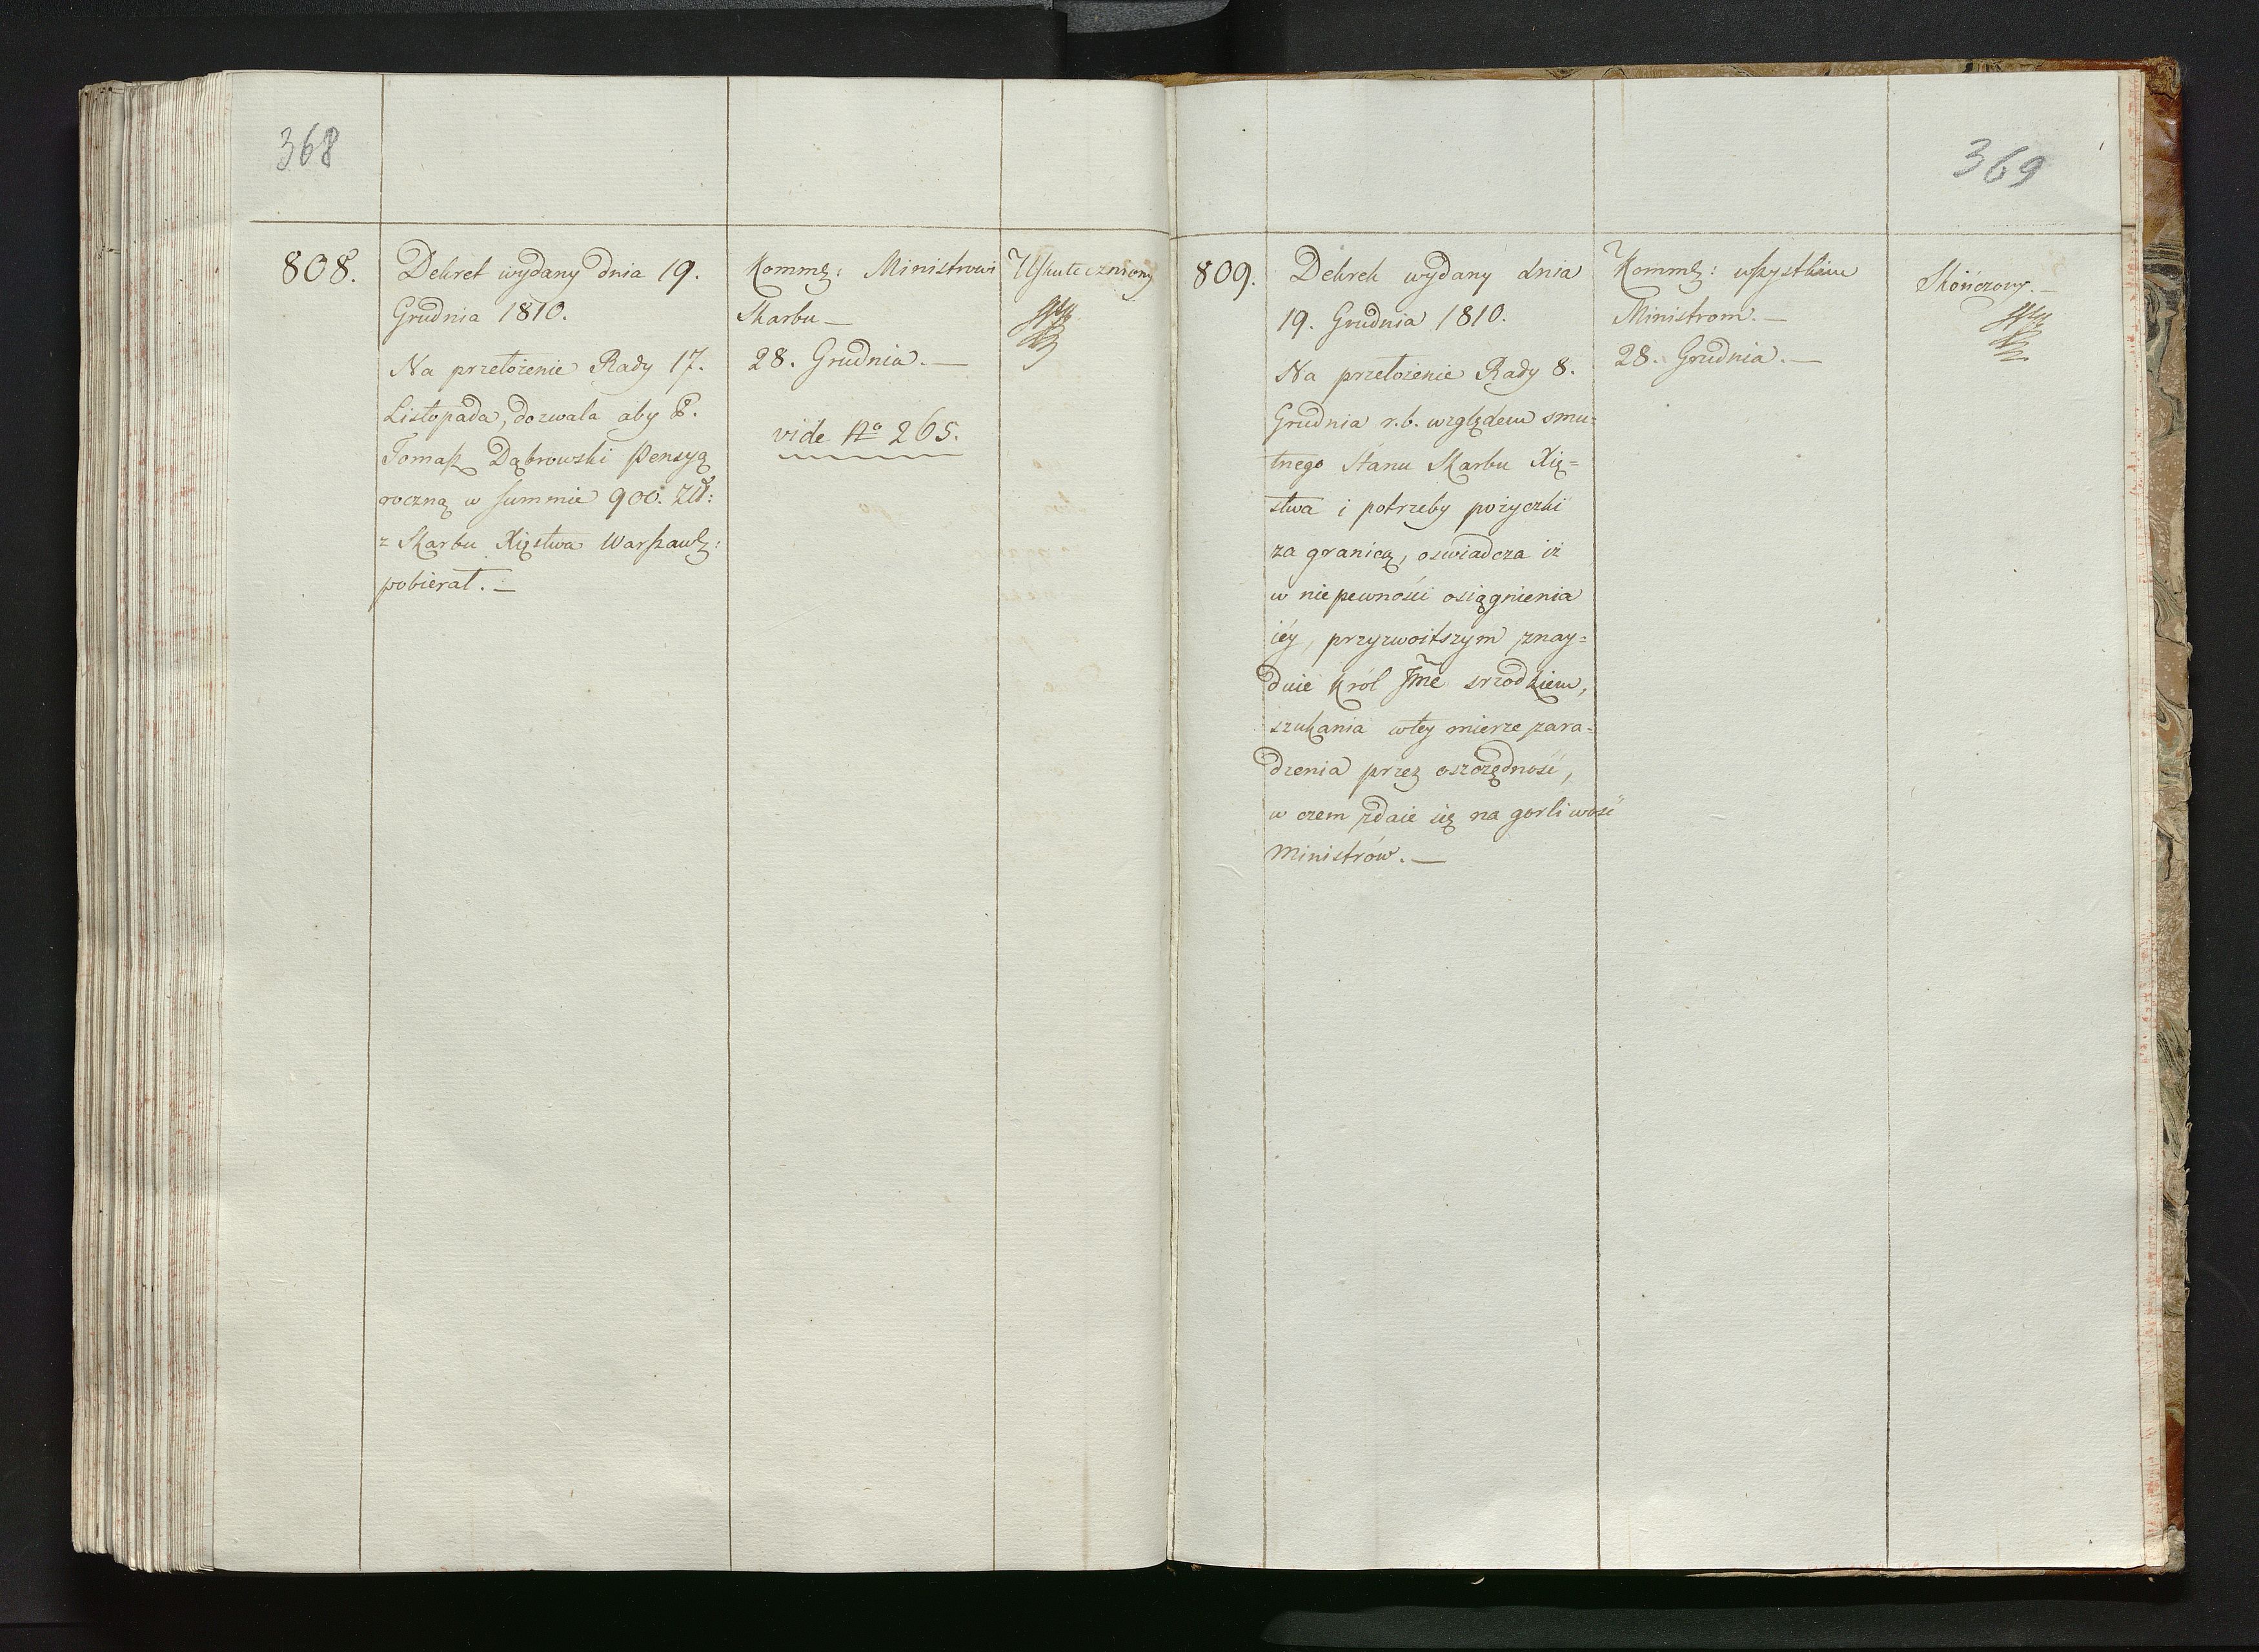 368
808.
Dekret wydany dnia 19.
Grudnia 1810.
Na przełożenie Rady 17.
Listopada, dozwala aby P.
Tomasz Dąbrowski pensyą
roczną w summie 900. Złł:
z Skarbu Xięstwa Warszaws:
pobierał. —
Komms: Ministrowi
Skarbu —
28. Grudnia. —
vide No 265.
Uskuteczniony
369
809.
Dekret wydany dnia
19. Grudnia 1810.
Na przełożenie Rady 8.
Grudnia r.b. względem smu=
tnego Stanu Skarbu Xię=
stwa i potrzeby pożyczki
za granicą, oswiadcza iż
w niepewności osiągnienia
iéy, przyzwoitszym znay=
duie Król Jmć srzodkiem,
szukania wtey mierze zara=
dzenia przez oszczędność,
w czem zdaie się na gorliwość
Ministrów. —
Komms: wszystkim
Ministrom. —
28. Grudnia. —
Skończony. —